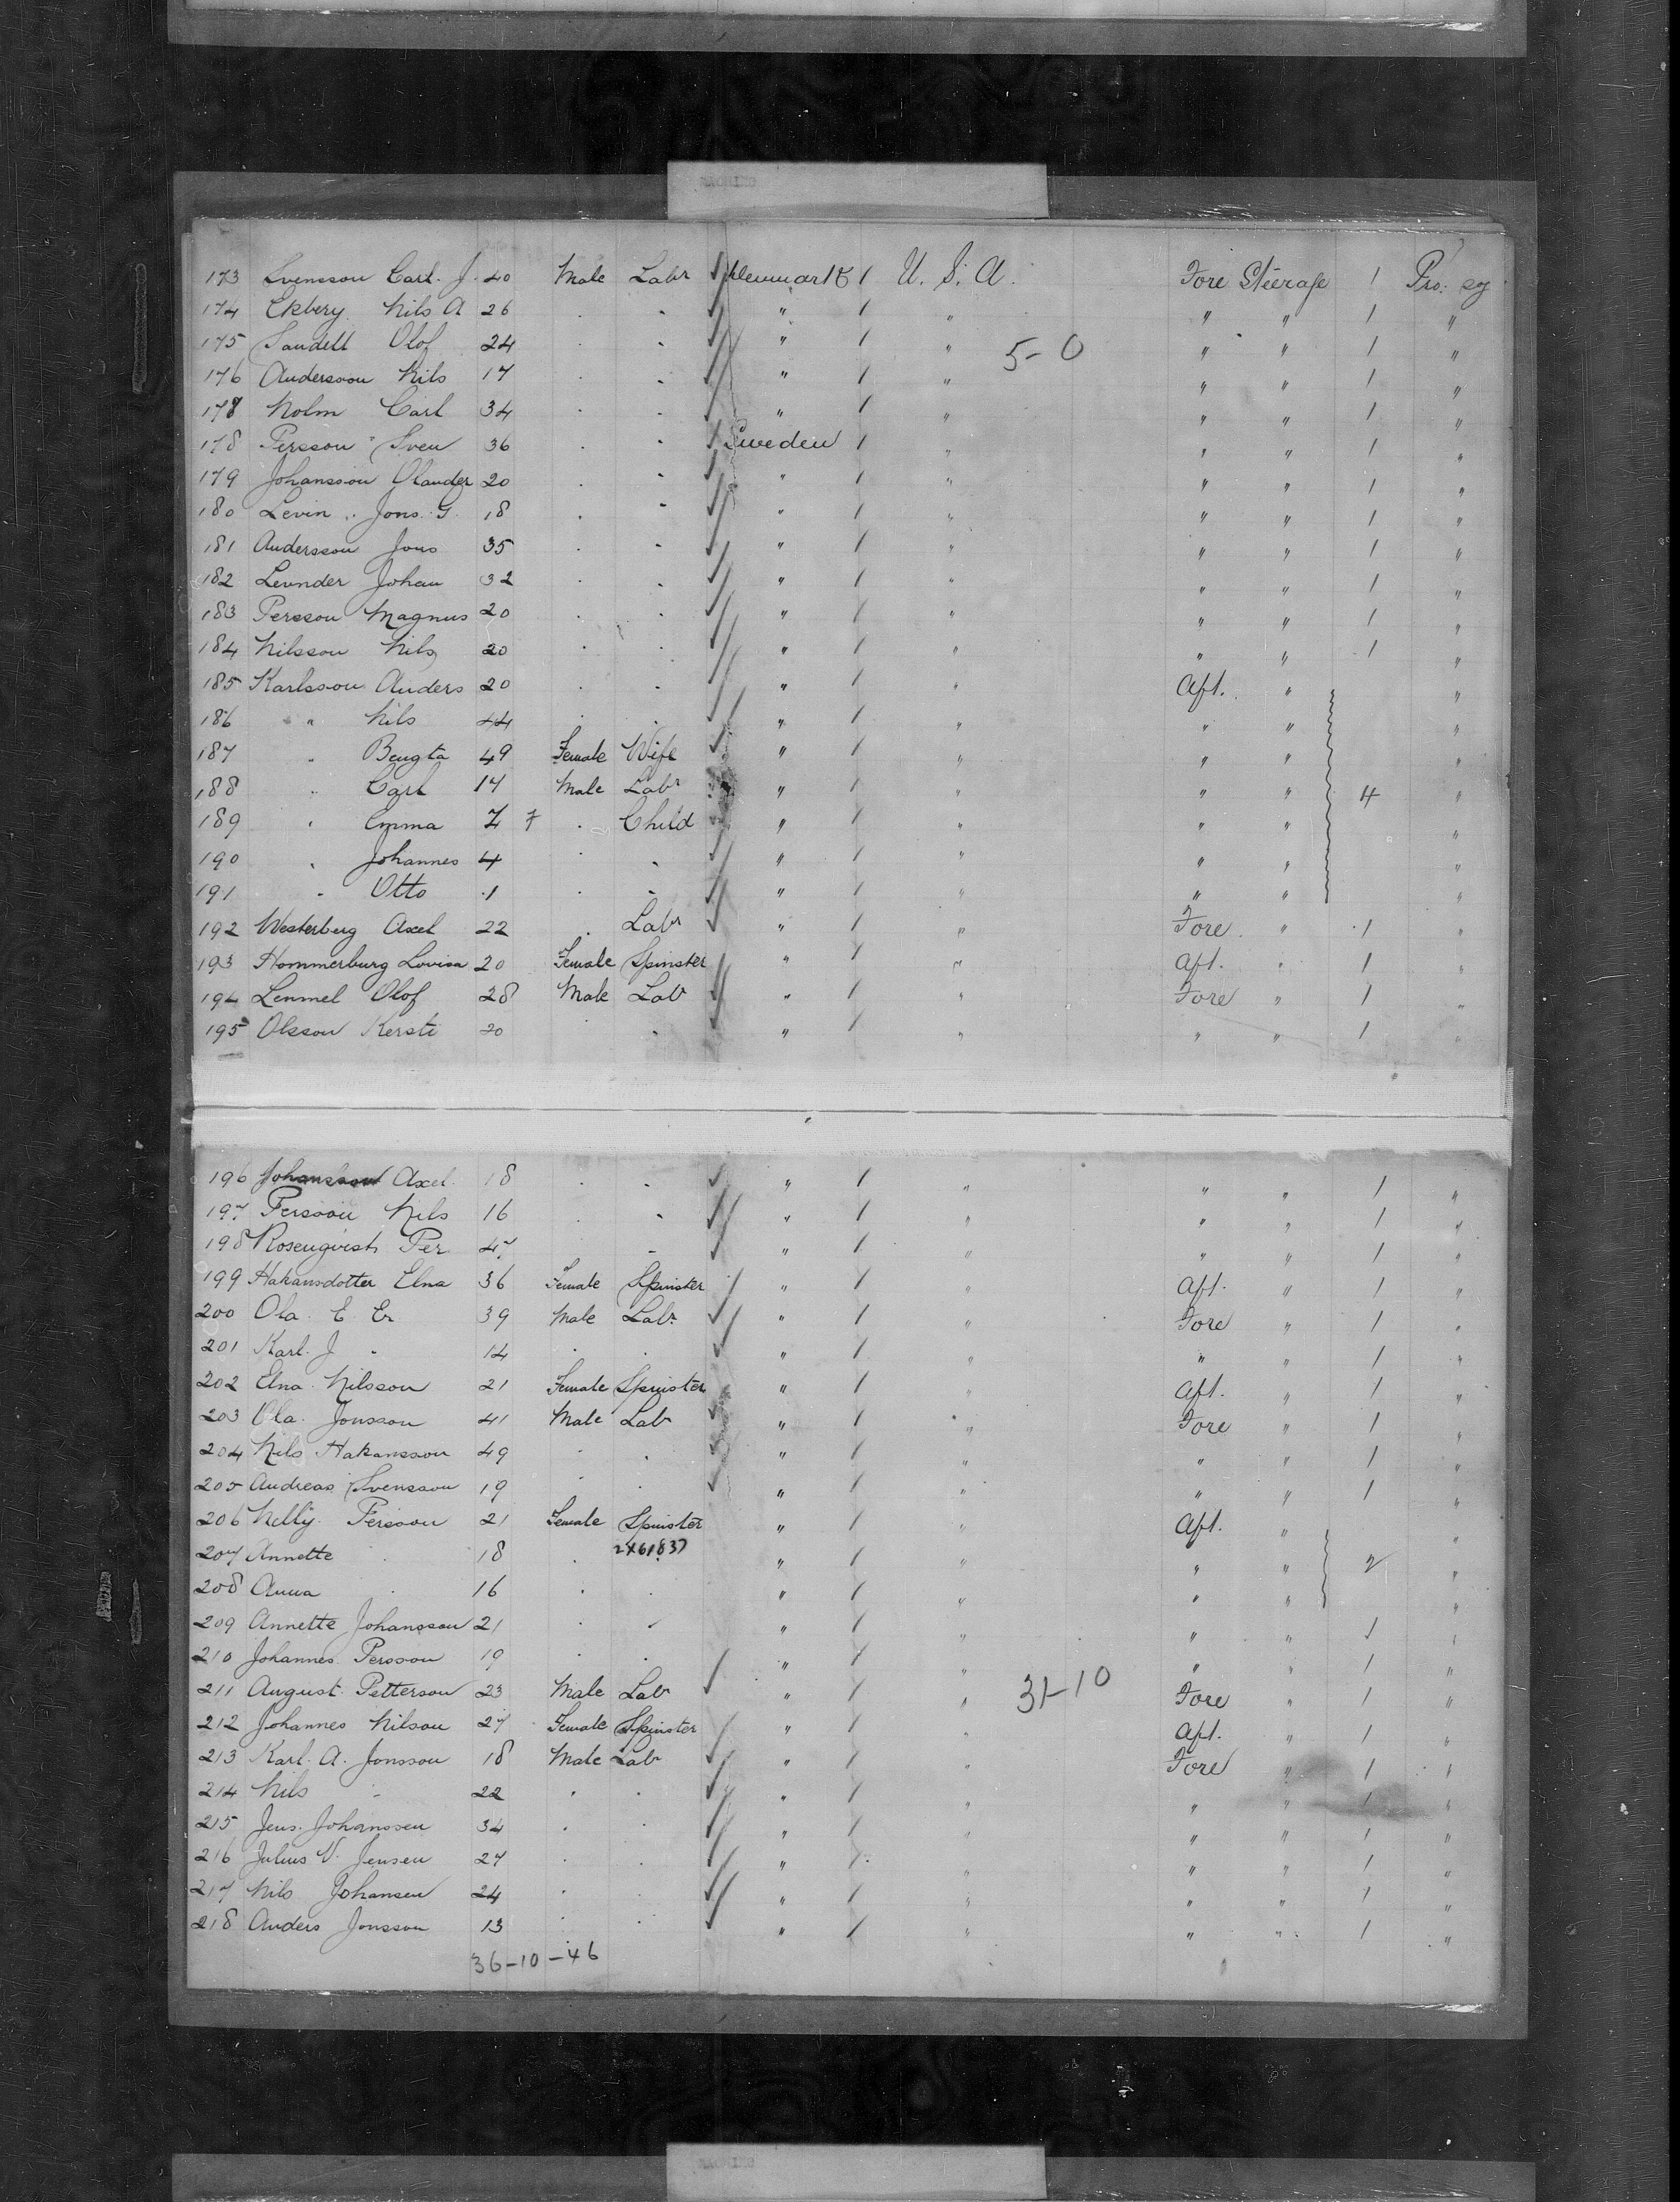 173 Svensson Carl. J. 40 Male Labr Denmark 1 U. S. A. Fore Steerage 1 Pro:
174 Ekberg Nils A 26 . . " 1 " " " 1 "
175 Sandell Olof 24 . . " 1 " 5-0 " " 1 "
176 Andersson Nils 17 . . " 1 " " " 1 "
178 Holm Carl 34 . . " 1 " " " 1 "
178 Persson Sven 36 . . Sweden 1 " " " 1 "
179 Johansson Olander 20 . . " 1 " " " 1 "
180 Levin Jons. G. 18 . . " 1 " " " 1 "
181 Andersson Jons 35 . . " 1 " " " 1 "
182 Johan 32 . . " 1 " " " 1 "
183 Persson Magnus 20 . . " 1 " " " 1 "
184 Nilsson Nils 20 . . " 1 " " " 1 "
185 Karlsson Anders 20 . . " 1 " Aft. " "
186 " Nils 44 . . " 1 " " " "
187 " Bengta 49 Female Wife " 1 " " " "
188 " Carl 14 Male Labr " 1 " " " 4 "
189 " Emma 7 7 . Child " 1 " " " "
190 " Johannes 4 . . " 1 " " " "
191 " Otto 1 . . " 1 " " " "
192 Westerberg Axel 22 . Labr " 1 " Fore " 1 "
193 Hommerburg Lovisa 20 Female Spinster " 1 " Aft. " 1 "
194 Lenmel Olof 28 Male Lab " 1 " Fore " 1 "
195 Olsson Kersti 20 . . " 1 " " " 1 "
196 Johansson Axel 18 . . " 1 " " " 1 "
197 Persson Nils 16 . . " 1 " " " 1 "
198 Rosenqvist Per 47 . . " 1 " " " 1 "
199 Hakansdotter Elna 36 Female Spinster " 1 " Aft. " 1 "
200 Ola. E. Er 39 Male Labr " 1 " Fore " 1 "
201 Karl. J " 14 . . " 1 " " " 1 "
202 Elna Nilsson 21 Female Spinster " 1 " Aft. " 1 "
203 Ola Jonsson 41 Male Lab " 1 " Fore " 1 "
204 Nils Hakansson 49 . . " 1 " " " 1 "
205 Andreas Svensson 19 . . " 1 " " " 1 "
206 Nelly Persson 21 Female Spinster " 1 " Aft. " "
207 Annette . 18 . " 1 " " " 2 "
208 Anna . 16 . . " 1 " " " "
209 Annette Johansson 21 . . " 1 " " " 1 "
210 Johannes Persson 19 . . " 1 " " " 1 "
211 August Petterson 23 Male Lab " 1 " 31-10 Fore " 1 "
212 Johannes Nilson 27 Female Spinster " 1 " Aft. " 1 "
213 Karl. A. Jonsson 18 Male Lab " 1 " Fore " 1 "
214 Nils " 22 . . " 1 " " " 1 "
215 Jens. Johanssen 34 . . " 1 " " " 1 "
216 Julius V. Jensen 27 . . " 1 " " " 1 "
217 Nils Johansen 24 . . " 1 " " " 1 "
218 Anders Jonsson 13 . . " 1 " " " 1 "
36-10-46